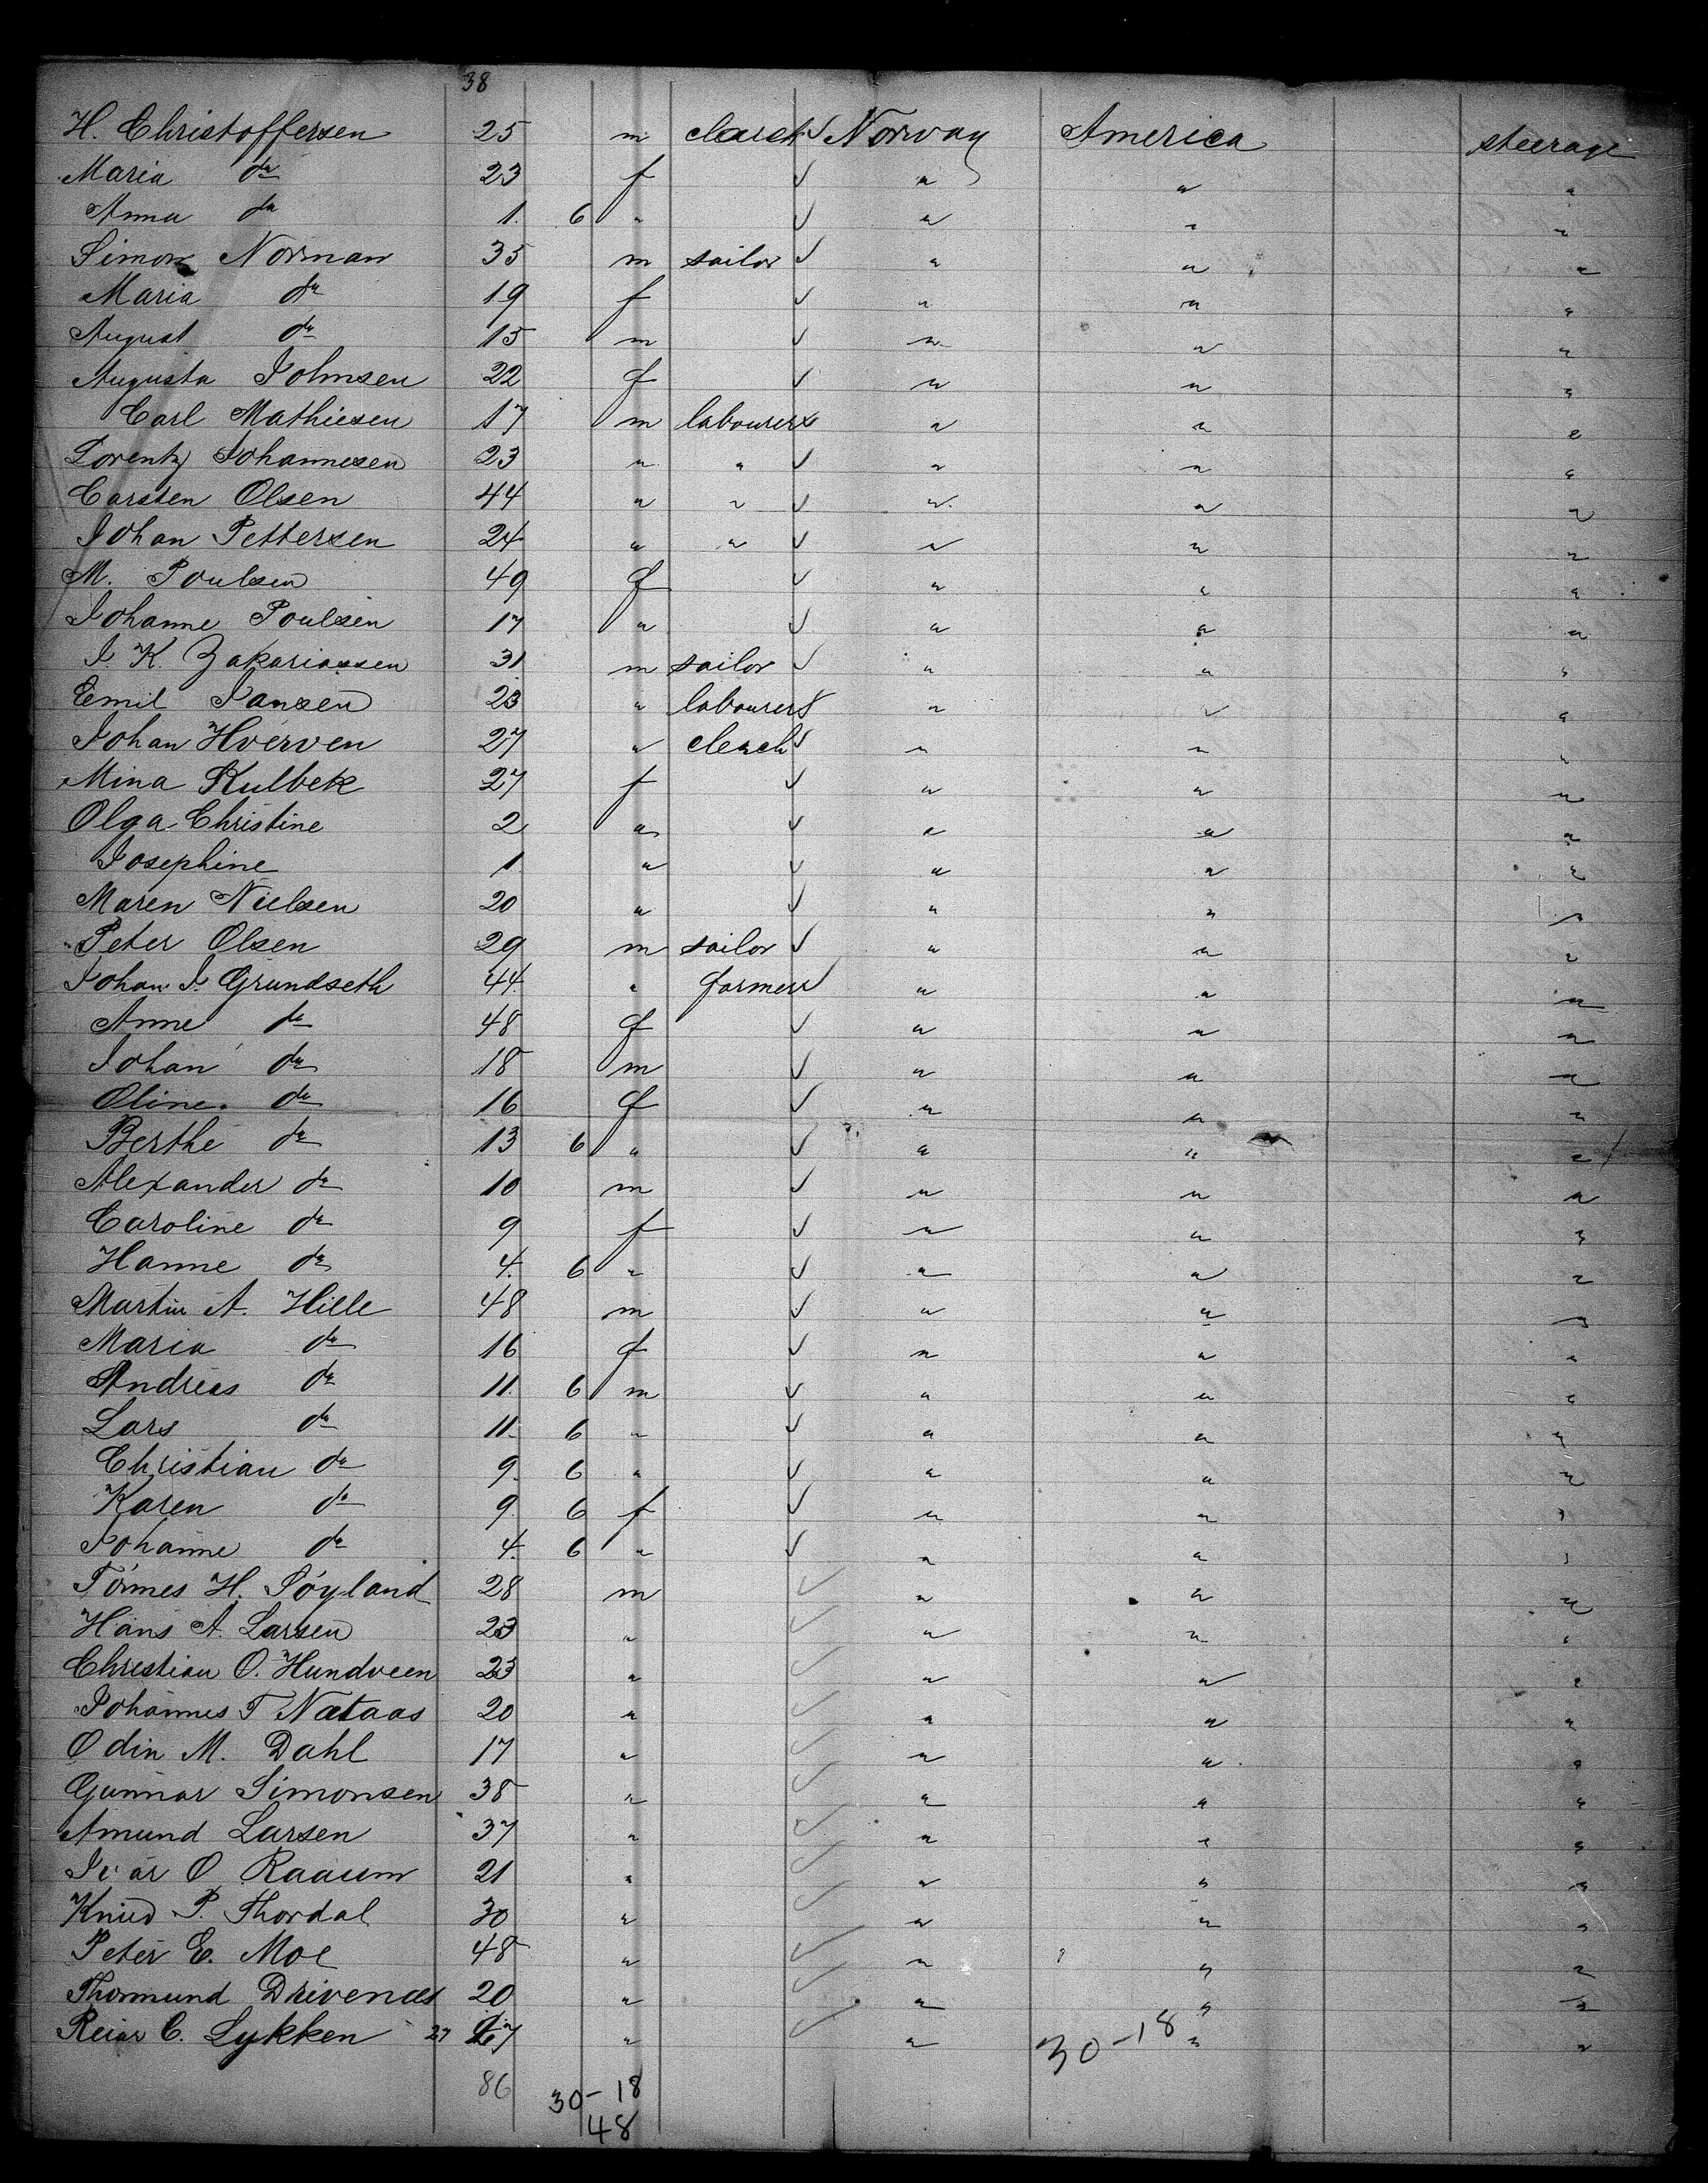 38
H. Christoffersen 25 m clearch ✓ Norway America steerage
Maria do 23 f ✓ " " "
Anna do 1. 6 " ✓ " " "
Simon Norman 35 m sailor ✓ " " "
Maria do 19 f ✓ " " "
August do 15 m ✓ " " "
Augusta Johnsen 22 f ✓ " " "
Carl Mathiesen 17 m labourer ✓ " " "
Lorentz Johannesen 23 " " ✓ " " "
Carsten Olsen 44 " " ✓ " " "
Johan Pettersen 24 " " ✓ " " "
M. Poulsen 49 f ✓ " " "
Johanne Poulsen 17 " ✓ " " "
J. K. Zakariassen 31 m sailor ✓ " " "
Emil Jansen 23 " labourer ✓ " " "
Johan Hverven 27 " clearch ✓ " " "
Mina Kulbek 27 f ✓ " " "
Olga Christine 2 " ✓ " " "
Josephine 1. " ✓ " " "
Maren Nielsen 20 " ✓ " " "
Peter Olsen 29 m sailor ✓ " " "
Johan J. Grundseth 44. " farmer ✓ " " "
Anne do 48 f ✓ " " "
Johan do 18 m ✓ " " "
Oline. do 16 f ✓ " " "
Berthe do 13 6 " ✓ " " "
Alexander do 10 m ✓ " " "
Caroline do 9 f ✓ " " "
Hanne do 4. 6 " ✓ " " "
Martin A. Hille 48 m ✓ " " "
Maria do 16 f ✓ " " "
Andreas do 11. 6 m ✓ " " "
Lars do 11. 6 " ✓ " " "
Christian do 9. 6 " ✓ " " "
Karen do 9. 6 f ✓ " " "
Johanne do 4. 6 " ✓ " " "
Tönnes H. Söyland 28 m ✓ " " "
Hans A. Larsen 23 " ✓ " " "
Christian O. Hundveen 23 " ✓ " " "
Johannes T Nataas 20 " ✓ " " "
Odin M. Dahl 17 " ✓ " " "
Gunnar Simonsen 38 " ✓ " " "
Amund Larsen 37 " ✓ " " "
Ivar O. Raaum 21 " ✓ " " "
Knud P. Thordal 30 " ✓ " " "
Peter E. Moe 48 " ✓ " " "
Thormund Drivenes 20 " ✓ " " "
Reiar C. Lykken 27 " ✓ " 30-18 " "
86 30-18
48